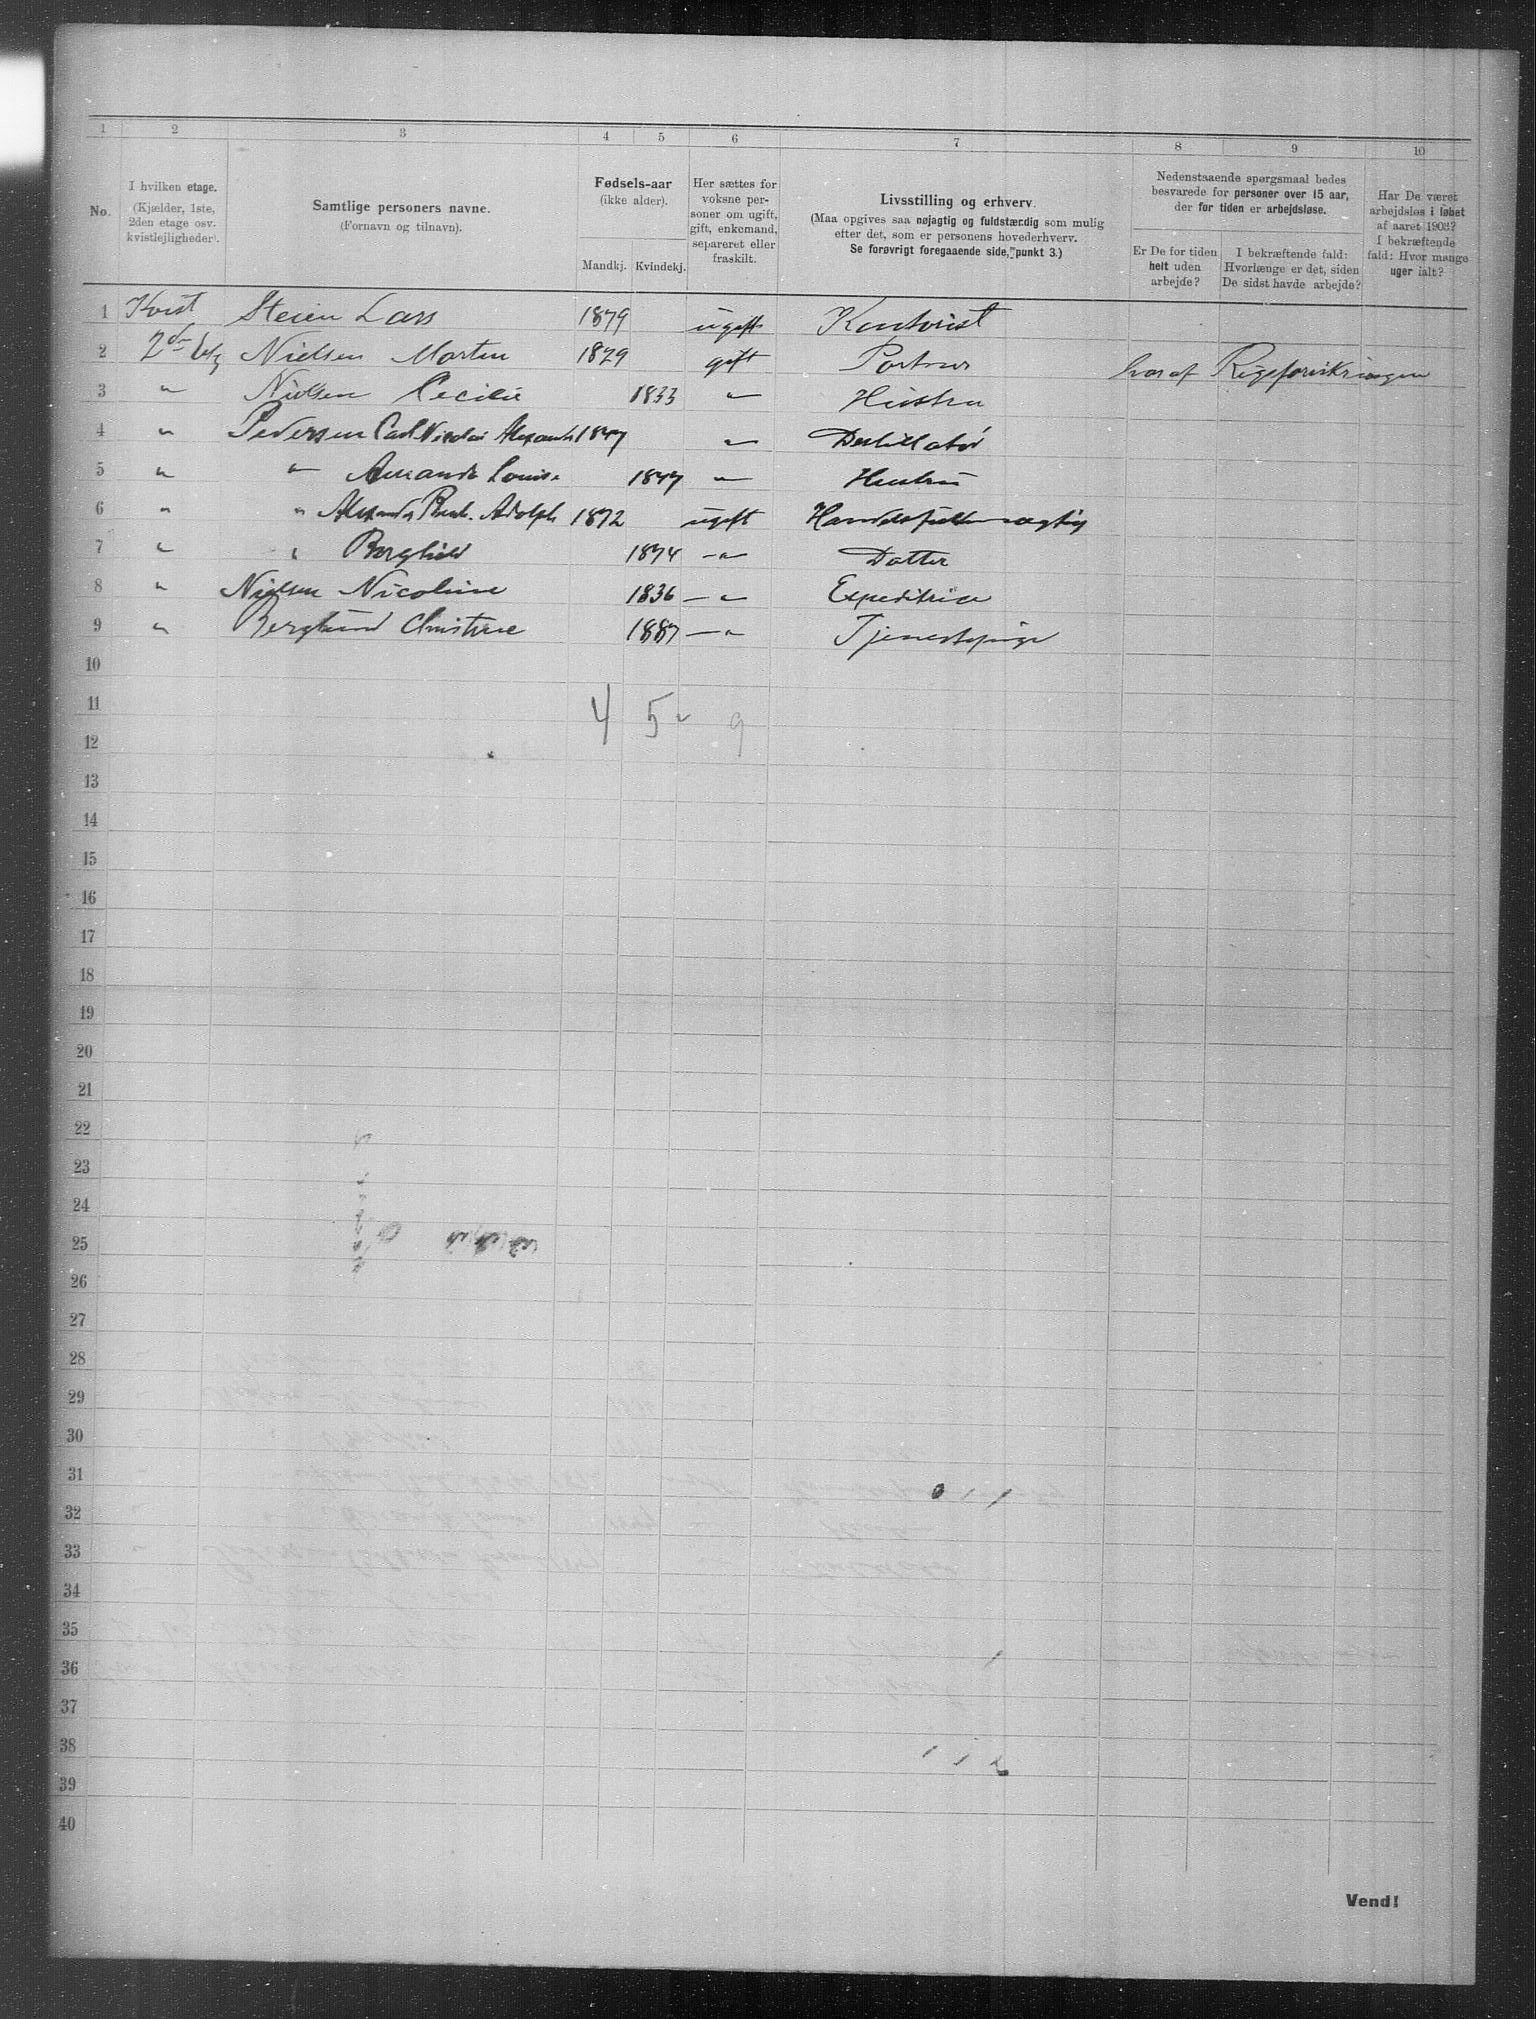 1 2 3 4 5 6 7 8 9 10
No.
I hvilken etage.
(Kjælder, 1ste,
2den etage osv.
kvistlejligheder).
Samtlige personers navne.
(Fornavn og tilnavn).
Fødsels-aar
(ikke alder).
Mandkj. Kvindekj.
Her sættes for
voksne per-
soner om ugift,
gift, enkemand,
separeret eller
fraskilt.
Livsstilling og erhverv.
(Maa opgives saa nøjagtig og fuldstændig som mulig
efter det, som er personens hovederhverv.
Se forøvrigt foregaaende side, punkt 3.)
Nedenstaaende spørgsmaal bedes
besvarede for personer over 15 aar,
der for tiden er arbejdsløse.
Er De for tiden
helt uden
arbejde?
I bekræftende fald:
Hvorlænge er det, siden
De sidst havde arbejde?
Har De været
arbejdsløs i løbet
af aaret 1903?
I bekræftende
fald: Hvor mange
uger ialt?
1 Kvist Steien Lars 1879 ugift Kontorist
2 2den etg Nielsen Morten 1829 gift Portner
3 " Nielsen Cecilie 1833 " Hustru
4 " Pedersen Carl Nicolai 1847 " Destillatør
5 " " Louise 1847 " Hustru
6 " " Adolph 1872 ugift Handelsfuldmægtig
7 " " Borghild 1874 " Datter
8 " Nielsen Nicoline 1836 " Expeditrice
9 " Berglund Christine 1887 " Tjenestepige
10
11 4 5 9
12
13
14
15
16
17
18
19
20
21
22
23
24
25
26
27
28
29
30
31
32
33
34
35
36
37
38
39
40
Vend!